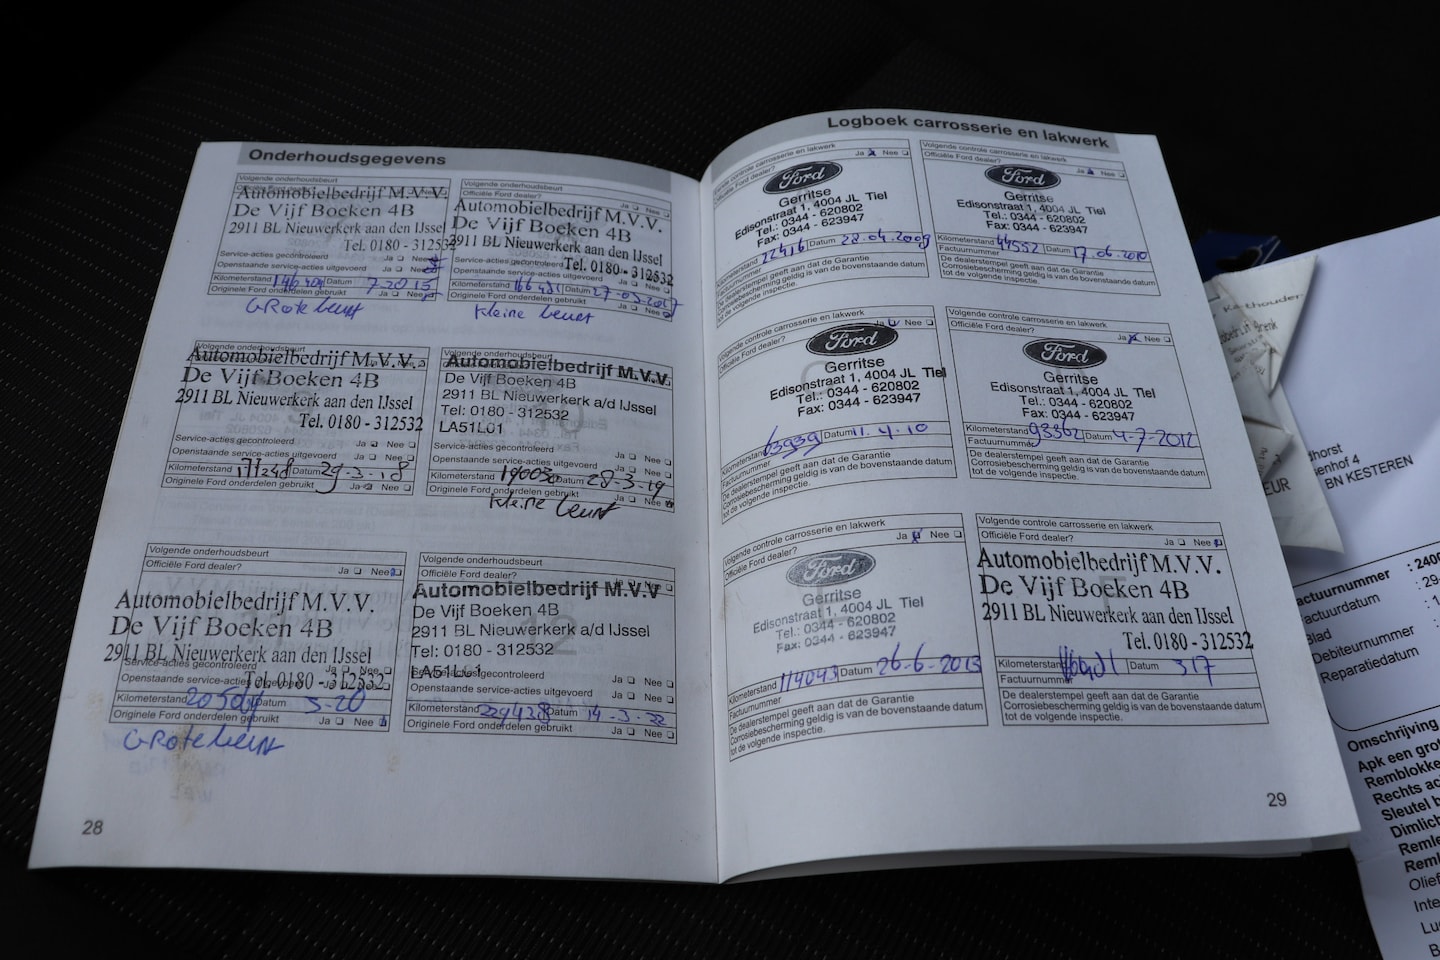 Onderhoudsgegevens
Volgende onderhoudsbeurt
Automobielbedrijf M.V.V.
De Vijf Boeken 4B
2911 BL Nieuwerkerk aan den IJssel
Tel. 0180 - 312532
Service-acties gecontroleerd Ja Nee
Openstaande service-acties uitgevoerd Ja Nee
Kilometerstand 146404 Datum 7-2015
Originele Ford onderdelen gebruikt Ja Nee
Grote beurt
Volgende onderhoudsbeurt
Officiële Ford dealer? Ja Nee
Automobielbedrijf M.V.V.
De Vijf Boeken 4B
2911 BL Nieuwerkerk aan den IJssel
Tel. 0180 - 312532
Service-acties gecontroleerd
Openstaande service-acties uitgevoerd
Kilometerstand 166481 Datum 27-03-2017
Originele Ford onderdelen gebruikt Ja Nee
Kleine beurt
Volgende onderhoudsbeurt
Automobielbedrijf M.V.V.
De Vijf Boeken 4B
2911 BL Nieuwerkerk aan den IJssel
Tel. 0180 - 312532
Service-acties gecontroleerd Ja Nee
Openstaande service-acties uitgevoerd Ja Nee
Kilometerstand 171248 Datum 29-3-18
Originele Ford onderdelen gebruikt Ja Nee
Volgende onderhoudsbeurt
Automobielbedrijf M.V.V.
De Vijf Boeken 4B
2911 BL Nieuwerkerk a/d IJssel
Tel: 0180 - 312532
LA51L01
Service-acties gecontroleerd Ja Nee
Openstaande service-acties uitgevoerd Ja Nee
Kilometerstand 190030 Datum 28-3-19
Originele Ford onderdelen gebruikt Ja Nee
Kleine beurt
Volgende onderhoudsbeurt
Officiële Ford dealer? Ja Nee
Automobielbedrijf M.V.V.
De Vijf Boeken 4B
2911 BL Nieuwerkerk aan den IJssel
Tel. 0180 - 312532
Service-acties gecontroleerd
Openstaande service-acties uitgevoerd Ja Nee
Kilometerstand Datum 5-20
Originele Ford onderdelen gebruikt Ja Nee
Grote beurt
Volgende onderhoudsbeurt
Officiële Ford dealer?
12
Automobielbedrijf M.V.V
De Vijf Boeken 4B
2911 BL Nieuwerkerk a/d IJssel
Tel: 0180 - 312532
Service-acties gecontroleerd Ja Nee
Openstaande service-acties uitgevoerd Ja Nee
Kilometerstand 224428 Datum 14-3-22
Originele Ford onderdelen gebruikt Ja Nee
28
Logboek carrosserie en lakwerk
Volgende controle carrosserie en lakwerk
Officiële Ford dealer? Ja Nee
Ford
Gerritse
Edisonstraat 1, 4004 JL Tiel
Tel.: 0344 - 620802
Fax: 0344 - 623947
Kilometerstand 22416 Datum 28.04.2009
Factuurnummer
De dealerstempel geeft aan dat de Garantie
Corrosiebescherming geldig is van de bovenstaande datum
tot de volgende inspectie.
Volgende controle carrosserie en lakwerk
Officiële Ford dealer? Ja Nee
Ford
Gerritse
Edisonstraat 1, 4004 JL Tiel
Tel.: 0344 - 620802
Fax: 0344 - 623947
Kilometerstand 44552 Datum 17.06.2010
Factuurnummer
De dealerstempel geeft aan dat de Garantie
Corrosiebescherming geldig is van de bovenstaande datum
tot de volgende inspectie.
Volgende controle carrosserie en lakwerk
Officiële Ford dealer? Ja Nee
Ford
Gerritse
Edisonstraat 1, 4004 JL Tiel
Tel.: 0344 - 620802
Fax: 0344 - 623947
Kilometerstand 63939 Datum 11.4.10
Factuurnummer
De dealerstempel geeft aan dat de Garantie
Corrosiebescherming geldig is van de bovenstaande datum
tot de volgende inspectie.
Volgende controle carrosserie en lakwerk
Officiële Ford dealer? Ja Nee
Ford
Gerritse
Edisonstraat 1, 4004 JL Tiel
Tel.: 0344 - 620802
Fax: 0344 - 623947
Kilometerstand 93362 Datum 4-7-2012
Factuurnummer
De dealerstempel geeft aan dat de Garantie
Corrosiebescherming geldig is van de bovenstaande datum
tot de volgende inspectie.
Volgende controle carrosserie en lakwerk
Officiële Ford dealer? Ja Nee
Ford
Gerritse
Edisonstraat 1, 4004 JL Tiel
Tel.: 0344 - 620802
Fax: 0344 - 623947
Kilometerstand 114043 Datum 26-6-2013
Factuurnummer
De dealerstempel geeft aan dat de Garantie
Corrosiebescherming geldig is van de bovenstaande datum
tot de volgende inspectie.
Volgende controle carrosserie en lakwerk
Officiële Ford dealer? Ja Nee
Automobielbedrijf M.V.V.
De Vijf Boeken 4B
2911 BL Nieuwerkerk aan den IJssel
Tel. 0180 - 312532
Kilometerstand 166481 Datum 317
Factuurnummer
De dealerstempel geeft aan dat de Garantie
Corrosiebescherming geldig is van de bovenstaande datum
tot de volgende inspectie.
29
Kenthouder
EUR
dhorst
enhof 4
BN KESTEREN
actuurnummer : 2400
actuurdatum : 29-
Blad : 1
Debiteurnummer :
Reparatiedatum
Omschrijving
Apk een grot
Remblokke
Rechts ac
Sleutel b
Dimlich
Remle
Remb
Olief
Inte
Lu
B